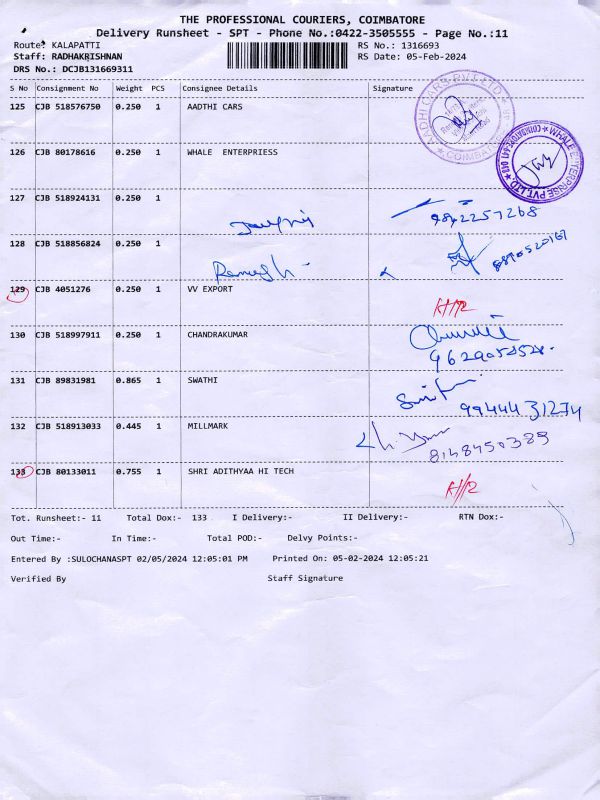 THE PROFESSIONAL COURIERS, COIMBATORE
Delivery Runsheet - SPT - Phone No.:0422-3505555 - Page No.:11
Route: KALAPATTI RS No.: 1316693
Staff: RADHAKRISHNAN RS Date: 05-Feb-2024
DRS No.: DCJB131669311
S No Consignment No Weight PCS Consignee Details Signature
125 CJB 518576750 0.250 1 AADTHI CARS
AADHI CARS PVT LTD COIMBATORE
126 CJB 80178616 0.250 1 WHALE ENTERPRIESS
WHALE ENTERPRISE PVT.LTD. COIMBATORE-641 018
127 CJB 518924131 0.250 1
9842257268
128 CJB 518856824 0.250 1
Ramesh
129 CJB 4051276 0.250 1 VV EXPORT
130 CJB 518997911 0.250 1 CHANDRAKUMAR
131 CJB 89831981 0.865 1 SWATHI
99444 31274
132 CJB 518913033 0.445 1 MILLMARK
8148450389
133 CJB 80133011 0.755 1 SHRI ADITHYAA HI TECH
Tot. Runsheet:- 11 Total Dox:- 133 I Delivery:- II Delivery:- RTN Dox:-
Out Time:- In Time:- Total POD:- Delvy Points:-
Entered By :SULOCHANASPT 02/05/2024 12:05:01 PM Printed On: 05-02-2024 12:05:21
Verified By Staff Signature